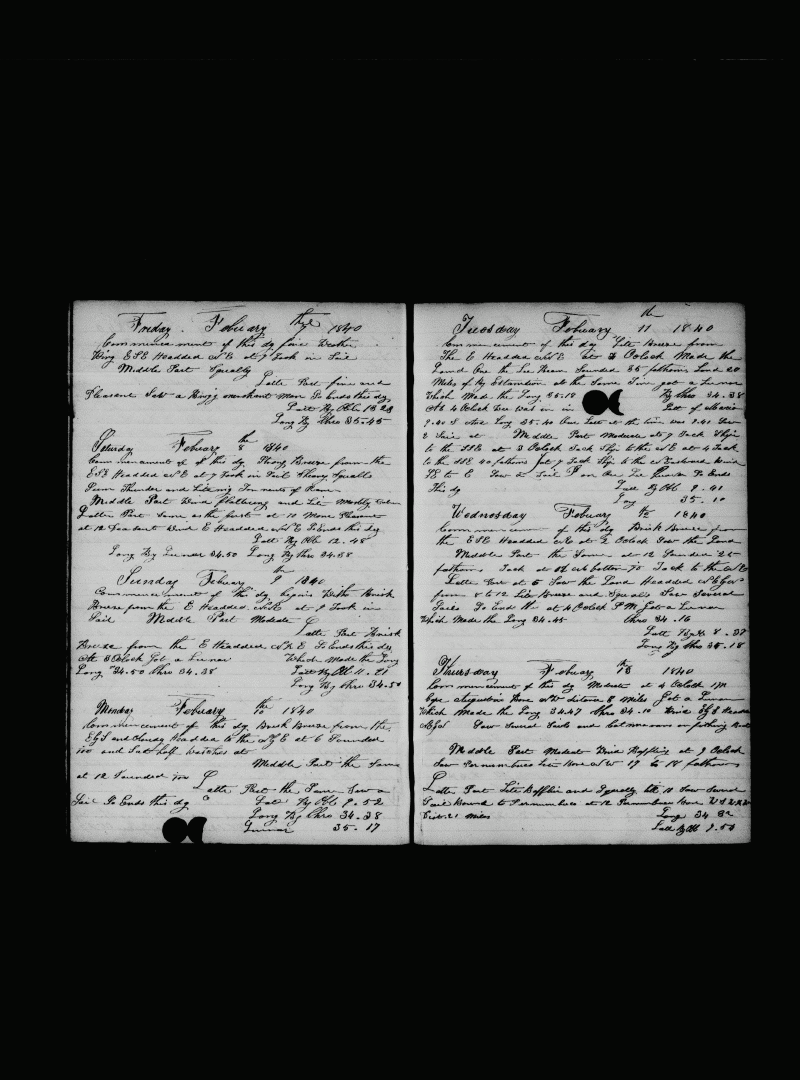 Friday Febuary the 7 1840
Commencement of this dy fine Wether
Wing ESE Headded NE at 7 took in Sail
Middle Part Squally
Latter Part fine and
Pleasant Saw a Brigg merchant man So Ends this dy
Latt By Ob 13 23
Long By Chro 35.45
Saturday Febuary 8th 1840
Commencement of this dy Strong Breeze from the
ESE Headded NE at 7 took in Sail Strong Squalls
Thunder and Litning Torrents of Rain
Middle Part Wind and Lite
Latter Part Same as the first at 11 More Pleasant
at 12 Wind E Headded NNE So Ends this dy
Latt By Ob 12.48
Long By Lunar 34.50 Long By Chro 34.58
Sunday Febuary 9 1840
Commencement of this dy begins With Brisk
Breeze from the E Headded NNE at 7 Took in
Sail Middle Part Moderate
Latter Part Brisk
Breeze from the E Headded NNE So Ends this dy
At 3 Oclock Got a Lunar Which Made the Long
Long 34.50 Chro 34.38 Latt By Ob 11.21
Long By Chro 34.50
Monday Febuary 10th 1840
Commencement of this dy Brisk Breeze from the
EBS and Cloudy Headded to the NBE at 6 Sounded
100 and Sat half Watches at
Middle Part the Same
at 12 Sounded
Latter Part the Same Saw a
Sail So Ends this dy Latt By Ob 9.52
Long By Chro 34.38
Lunar 35.17
Tuesday Febuary 11th 1840
Commencement of this dy Lite Breeze from
The E Headded NNE at 3 Oclock Made the
Land One the Lee Beam Sounded 35 fathoms Land 20
Miles of By Estamtion at the Same Time got a Lunar
Which Made the Long 35.18 By Chro 34.38
At 4 Oclock Wee was on in Latt of
9.40 S And Long 35.40 Our Latt at the time was 9.41 Saw
2 Sails at Middle Part Moderate at 7 Tack Ship
to the SSE at 3 Oclock Tack Ship to the NE at 4 Tack
to the SSE 40 fathoms at 7 Tack Ship to the Nortward Wind
SE to E Saw a Sail on Our Lee So Ends
This dy Latt By Ob 9.41
Long 35.10
Wednesday Febuary 12 1840
Commencement of this dy Brisk Breeze from
the ESE Headded NE at 2 Oclock Saw the Land
Middle Part the Same at 12 Sounded 25
fathoms Tack at Tack to the NE
Latter One at 5 Saw the Land Headded
from 8 to 12 Lite Breeze and Squals Saw Several
Sails So Ends at 4 Oclock PM Got a Lunar
Which Made the Long 34.45 Chro 34.16
Latt By Ob 8.37
Long By Chro 35.18
Thursday Febuary 13th 1840
Commencement of this dy Moderate at 4 Oclock PM
Cape Augustine Bore NW distance 8 Miles Got a Lunar
Which Made the Long 34.47 Chro 34.10 Wind EBS Headed
Saw Several Sails and Catmarans on fishing
Middle Part Moderate Wind Baffling at 9 Oclock
Saw Pernambuco Lite Bore NW 17 to 18 fathoms
Latter Part Lite Bafflin and Squally till 10 Saw Several
Sail Bound to Pernambuco at 12 Pernambuco Bore
Dist 21 Miles Long 34 32
Latt By Ob 7.50